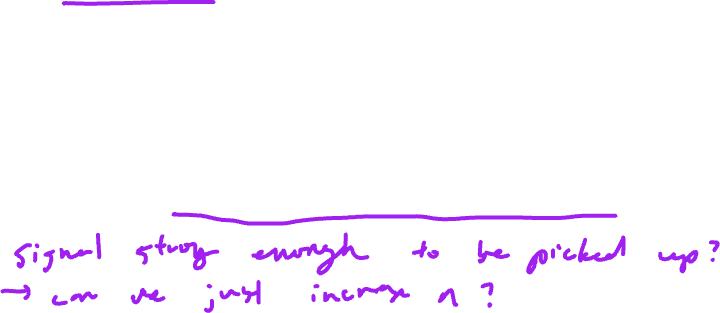 signal strong enough to be picked up?
→ can we just increase n?